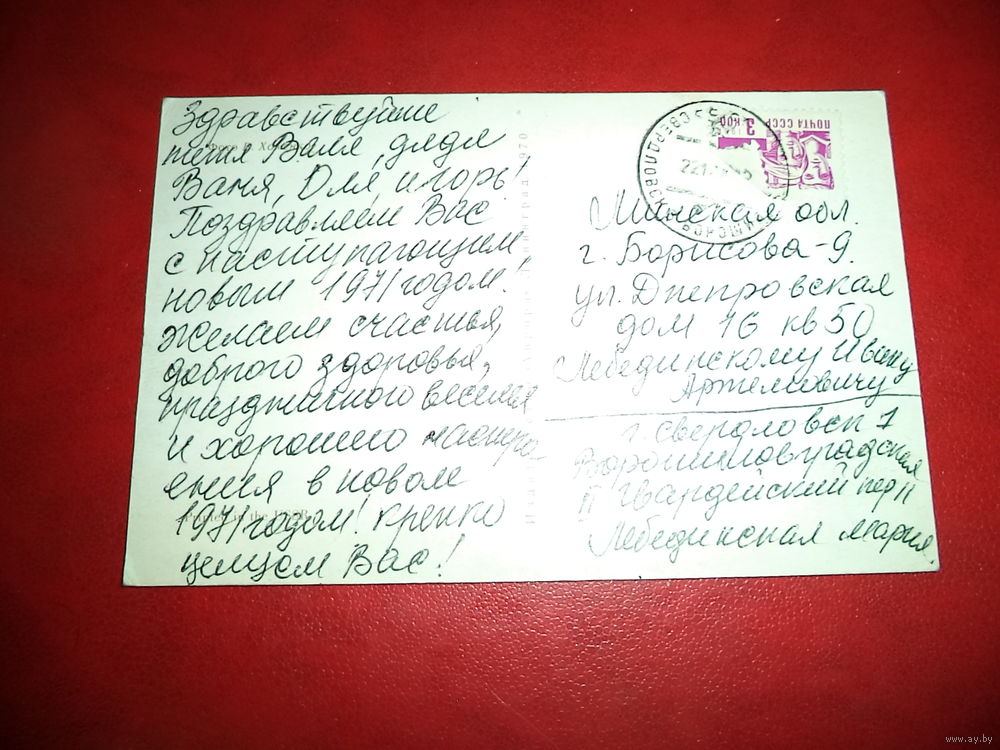 Здравствуйте
тётя Валя, дядя
Ваня, Оля, игорь!
Поздравляем Вас
с наступающим,
новым 1971 годом!
желаем счастья,
доброго здоровья,
праздничного веселья
и хорошего настро
ения в новом
1971 годом! крепко
целуем Вас!
ПОЧТА СССР
3 КОП
Минская обл.
г. Борисова-9.
ул. Днепровская
дом 16 кв 50
Лебединскому Ивану
Артемовичу
г. Свердловск 1
Ворошиловградская
II Гвардейский пер 11
Лебединская Мария.
Printed in the USSR
www.ay.by